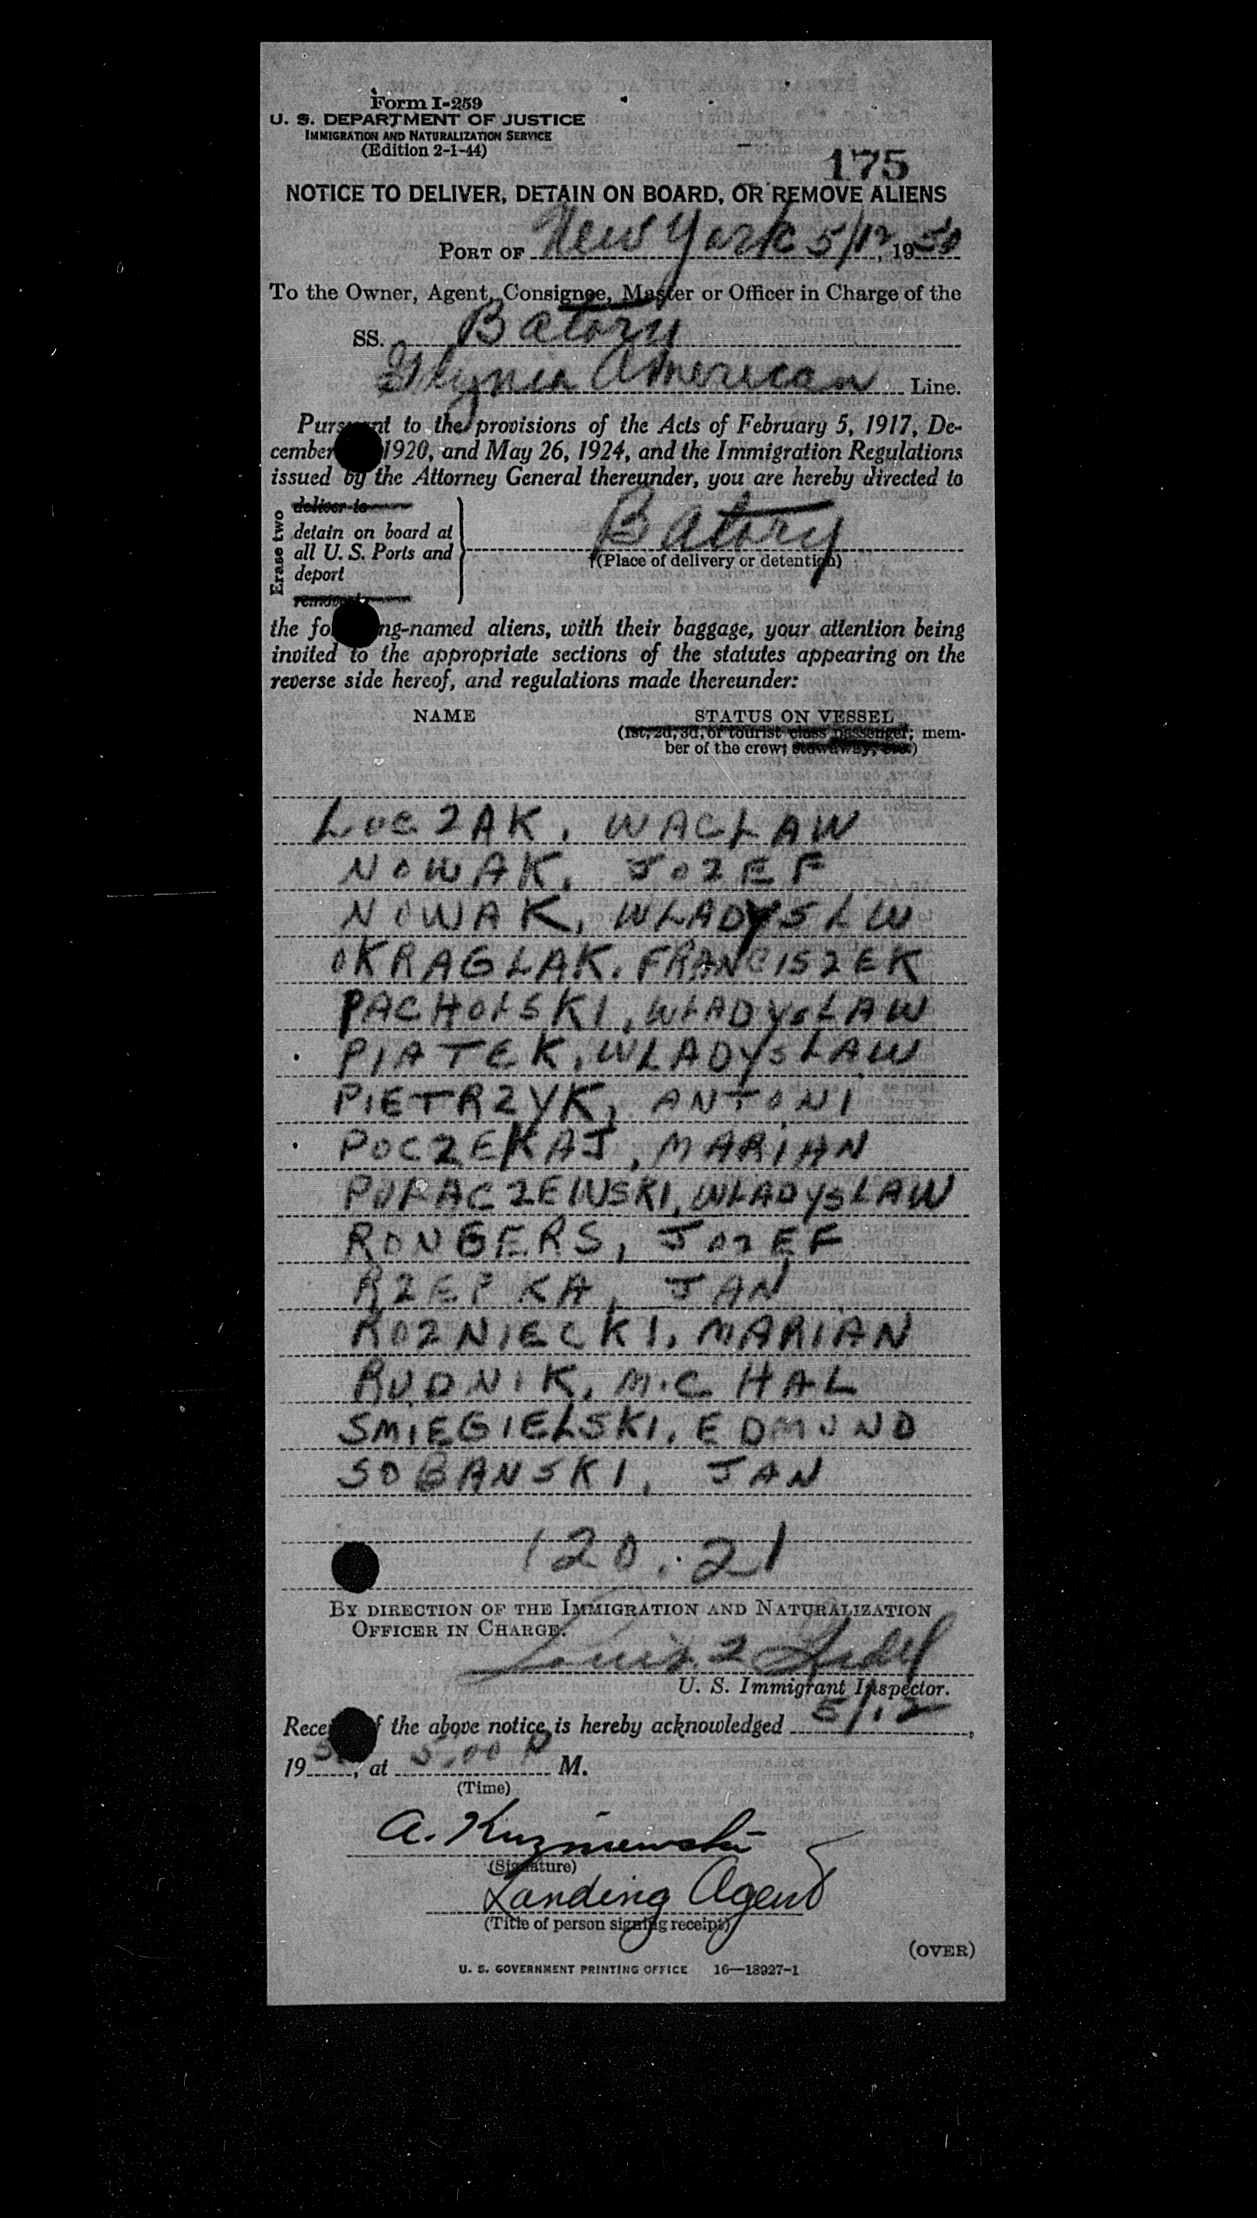 Form I-259
U. S. DEPARTMENT OF JUSTICE
IMMIGRATION AND NATURALIZATION SERVICE
(Edition 2-1-44)
175
NOTICE TO DELIVER, DETAIN ON BOARD, OR REMOVE ALIENS
PORT OF New York 5/12, 1950
To the Owner, Agent, Consignee, Master or Officer in Charge of the
SS. Batory
Gdynia American Line.
Pursuant to the provisions of the Acts of February 5, 1917, De-
cember 1920, and May 26, 1924, and the Immigration Regulations
issued by the Attorney General thereunder, you are hereby directed to
Erase two
deliver to
detain on board at
all U. S. Ports and
deport
remove to
Batory
†(Place of delivery or detention)
the following-named aliens, with their baggage, your attention being
invited to the appropriate sections of the statutes appearing on the
reverse side hereof, and regulations made thereunder:
NAME STATUS ON VESSEL
(1st, 2d, 3d, or tourist class passenger; mem-
ber of the crew; stowaway, etc.)
LUCZAK, WACLAW
NOWAK, JOZEF
NOWAK, WLADYSLW
OKRAGLAK, FRANCISZEK
PACHOLSKI, WLADYSLAW
PIATEK, WLADYSLAW
PIETRZYK, ANTONI
POCZEKAJ, MARIAN
PURACZEWSKI, WLADYSLAW
RONGERS, JOZEF
RZEPKA, JAN
ROZNIECKI, MARIAN
RUDNIK, MICHAL
SMIEGIELSKI, EDMUND
SOBANSKI, JAN
120.21
BY DIRECTION OF THE IMMIGRATION AND NATURALIZATION
OFFICER IN CHARGE.
Louis
U. S. Immigrant Inspector.
Receipt of the above notice is hereby acknowledged 5/12,
1950, at 5:00 P M.
(Time)
A. Kuzniewski
(Signature)
Landing Agent
(Title of person signing receipt)
(OVER)
U. S. GOVERNMENT PRINTING OFFICE 16—18927-1